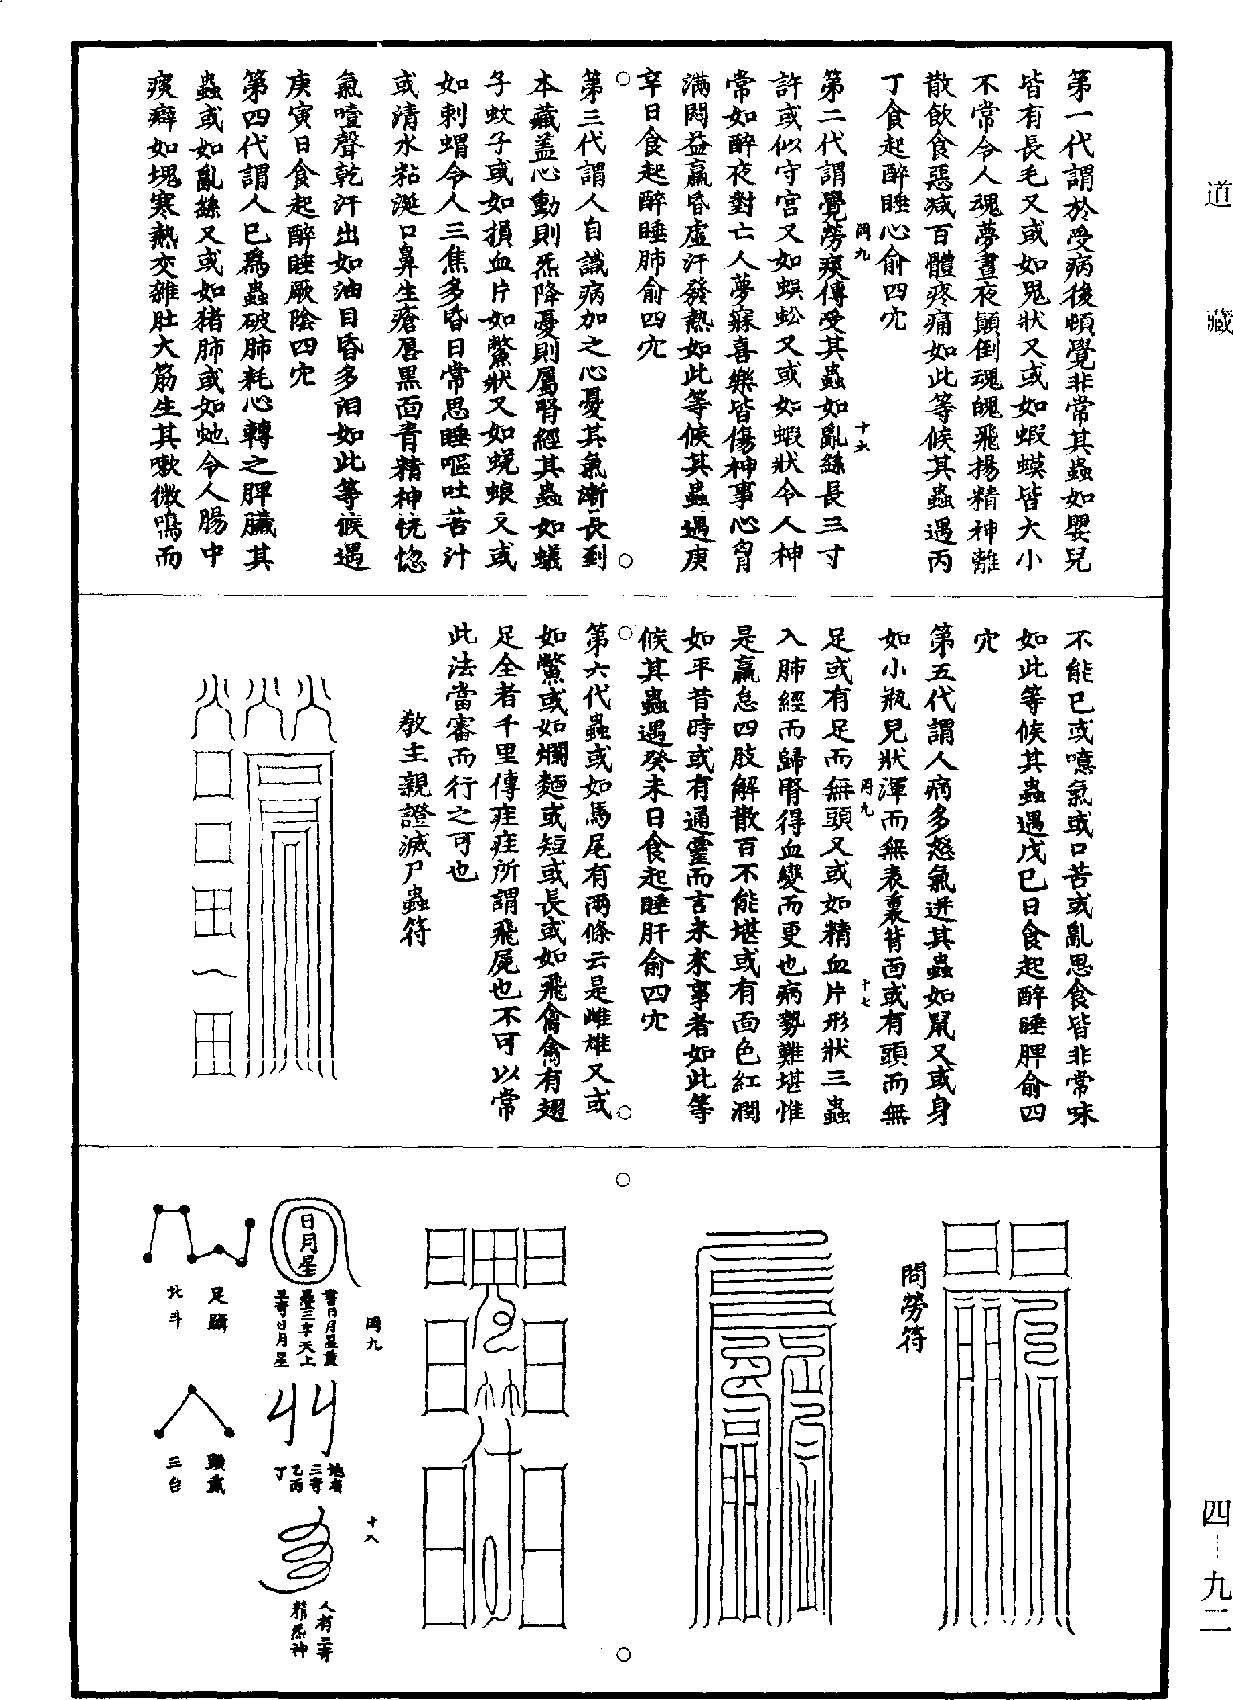 道藏
第一代謂於受病後頓覺非常其蟲如嬰兒
皆有長毛又或如鬼狀又或如蝦蟆皆大小
不常令人魂夢晝夜顛倒魂魄飛揚精神離
散飲食惡减百體疼痛如此等候其蟲遇丙
丁食起醉睡心俞四穴
第二代謂覺勞痰傳受其蟲如亂絲長三寸
許或似守宮又如蜈蚣又或如蝦狀令人神
常如醉夜對亡人夢寐喜樂皆傷神事心胷
滿悶益羸昏虛汗發熱如此等候其蟲遇庚
辛日食起醉睡肺俞四穴
第三代謂人自識病加之心憂其氣漸長到
本藏盖心動則炁降憂則屬腎經其蟲如蟻
子蚊子或如損血片如鱉狀又如蜣蜋又或
如刺蝟令人三焦多昏日常思睡嘔吐苦汁
或清水粘涎口鼻生瘡唇黑面青精神恍惚
氣噎聲乾汗出如油目昏多泪如此等候遇
庚寅日食起醉睡厥陰四穴
第四代謂人已爲蟲破肺耗心轉之脾臟其
蟲或如亂絲又或如猪肺或如虵令人腸中
痰癖如塊寒熱交雜肚大筋生其嗽微嗚而
不能已或噫氣或口苦或亂思食皆非常味
如此等候其蟲遇戊巳日食起醉睡脾俞四
穴
第五代謂人病多怒氣逆其蟲如鼠又或身
如小瓶兒狀渾而無表裏背面或有頭而無
足或有足而無頭又或如精血片形狀三蟲
入肺經而歸腎得血變而更也病勢難堪惟
是羸怠四肢解散百不能堪或有面色紅潤
如平昔時或有通靈而言未來事者如此等
候其蟲遇癸未日食起睡肝俞四穴
第六代蟲或如馬尾有兩條云是雌雄又或
如鱉或如爛麵或短或長或如飛禽禽有翅
足全者千里傳疰疰所謂飛屍也不可以常
此法當審而行之可也
教主親證滅尸蟲符
問勞符
岡九
十六
岡九
十七
岡九
十八
日月星
書日月星叢
疊三字天上
三奇日月星
地有
三奇
乙丙
丁
人有三奇
精炁神
足躡
北斗
頭戴
三台
四—九二